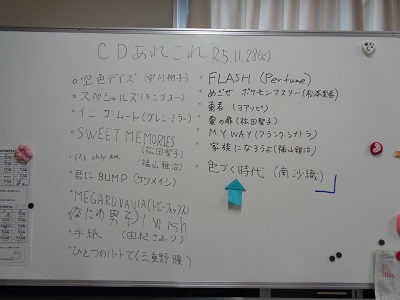 CDあれこれ R5.11.28(火)
○ 空色デイズ(中川翔子)
○ スペシャルズ(キングヌー)
○ イン ザ ムード(グレン・ミラー)
○ SWEET MEMORIES
(松田聖子)
・it's only love
(福山雅治)
・君に BUMP (ケツメイシ)
・MEGAROVANIA(トビー・フォックス)
(なにわ男子) I wish
・手紙 (由紀さおり)
・ひとつのハートで(三重野 瞳)
・FLASH (Perfume)
・めざせ ポケモンマスター(松本梨香)
・勇者 (ヨアソビ)
・愛の扉(松田聖子)
・MY WAY (フランク・シナトラ)
・家族になろうよ(福山雅治)
・色づく時代 (南沙織)